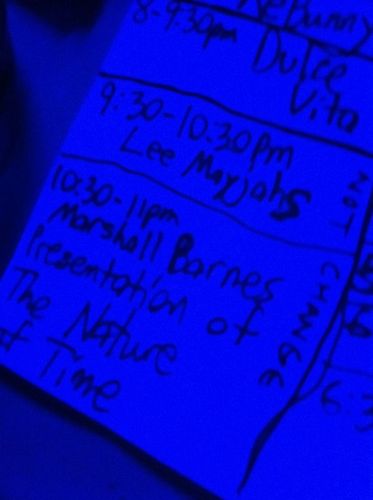 ReBunny
8-9:30pm Dulce
Vita
9:30-10:30pm
Lee Mayjahs
10:30-11pm
Marshall Barnes
Presentation of
The Nature
of Time
NOT
CHANGE